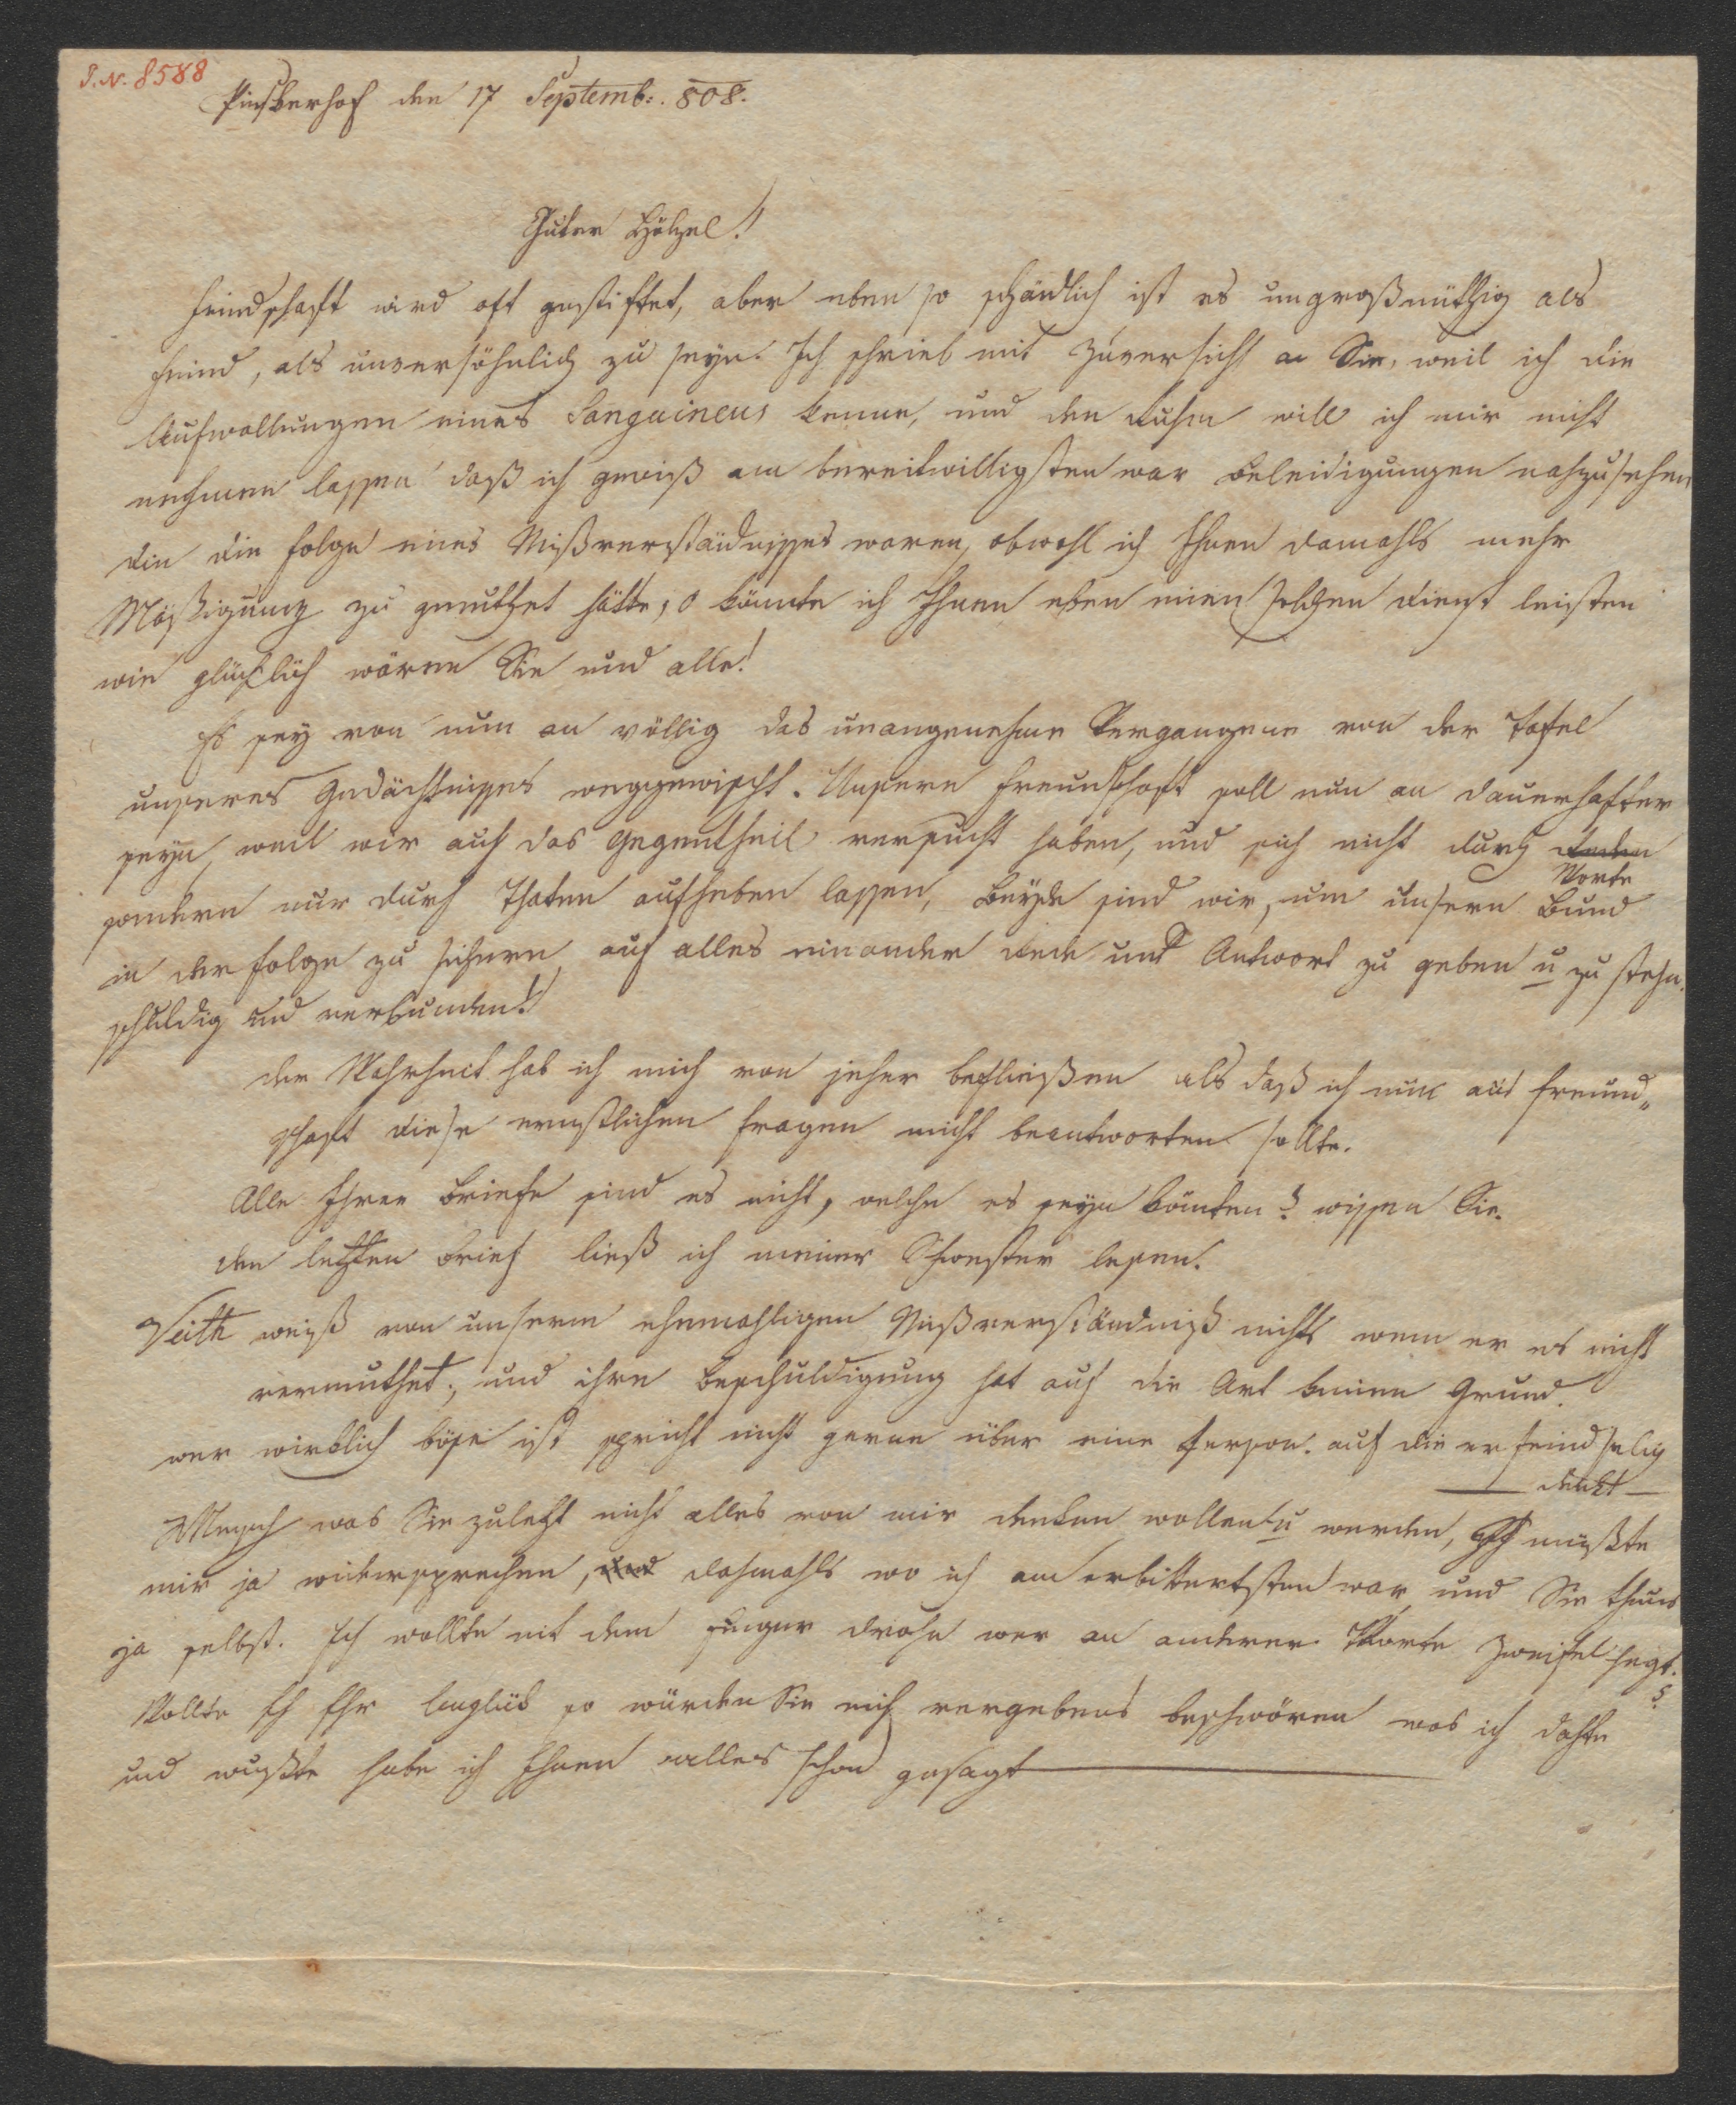 I.N. 8588
den 17 Septemb: 808.
Guter Hölzel!
Feindschaft wird oft gestiftet, aber eben so schändlich ist es ungroßmüthig als
Feind, als unversöhnlich zu seyn. Ich schrieb mit Zuversicht an Sie, weil ich die
Aufwallungen eines Sanguineus kenne, und den Ruhm will ich mir nicht
nehmen lassen daß ich gewiß am bereitwilligsten war Beleidigungen nachzusehen,
die die Folge eines Mißverständnisses waren, obwohl ich Ihnen damahls mehr
Mäßigung zu gemuthet hätte; o könnte ich Ihnen eben einen solchen Dienst leisten
wie glücklich wären Sie und alle!
Es sey von nun an völlig das unangenehme Vergangene von der Tafel
unseres Gedächtnisses weggewischt. Unsere Freundschaft soll nun an dauerhafter
seyn, weil wir auch das Gegentheil versucht haben, und sich nicht durch Reden
Worte
sondern nur durch Thaten aufheben lassen, Beyde sind wir, um unsern Bund
in der Folge zu sichern auf alles einander Rede und Antwort zu geben u zu stehn.
schuldig und verbunden!
Der Wahrheit hab ich mich von jeher befließen als daß ich nun aus Freund„
schaft diese ernstlichen Fragen nicht beantworten sollte.
Alle Ihrer Briefe sind es nicht, welche es seyn könnten? wissen Sie.
den letzten Brief ließ ich meiner Schwester lesen.
Veith weiß von unserm ehemahligen Mißverständniß nichts wenn er es nicht
vermuthet; und ihre Beschuldigung hat auf die Art keinen Grund.
wer wirklich böse ist spricht nicht gerne über eine Person. auf die er feindselig
denkt
Mensch was Sie zuletzt nicht alles von mir denken wollen u werden, Ich müßte
mir ja widersprechen, dahmahls wo ich am erbittertsten war und Sie thuns
ja selbst. Ich wollte mit dem Finger drohn wer an anderer Worte Zweifel hegt.
Wollte Ich Ihr Unglück so würden Sie mich vergebens beschwören was ich dachte
und wußte habe ich Ihnen alles schon gesagt